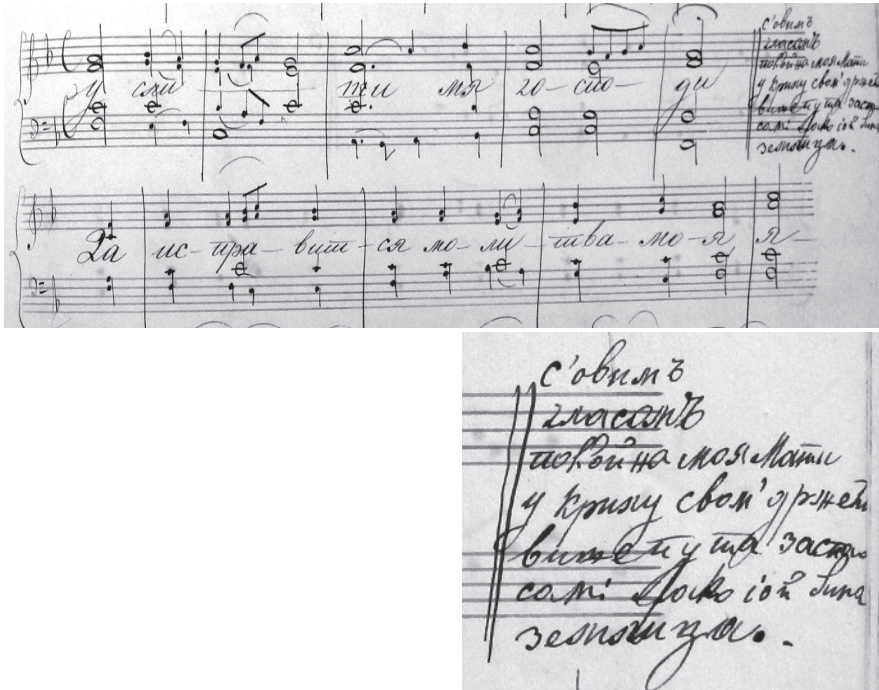 у слы – ши мя го – спо – ди
с'овимъ
гласомъ
покойна моя Мати
у крилу свом' држећ
више пута заспо
сам: Лако іой била
землица.
Да ис – пра – вит – ся мо – ли – тва – мо – я я –
с'овимъ
гласомъ
покойна моя Мати
у крилу свом' држећ
више пута заспо
сам: Лако іой била
землица.